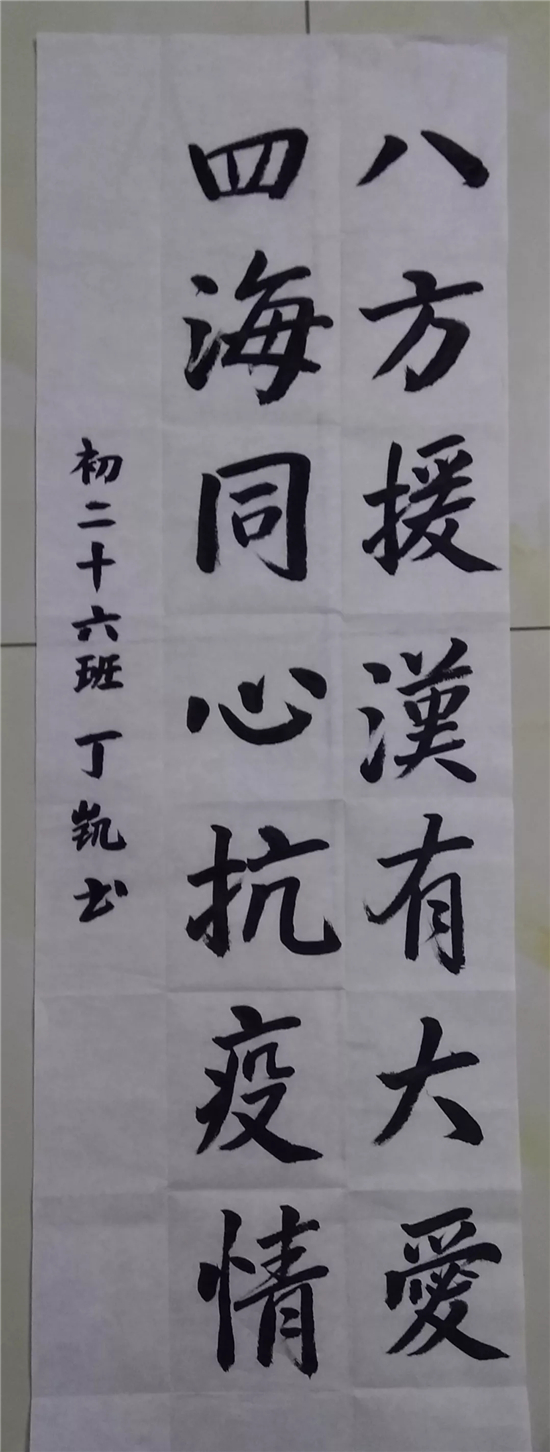 八方援漢有大愛
四海同心抗疫情
初二十六班 丁凯书